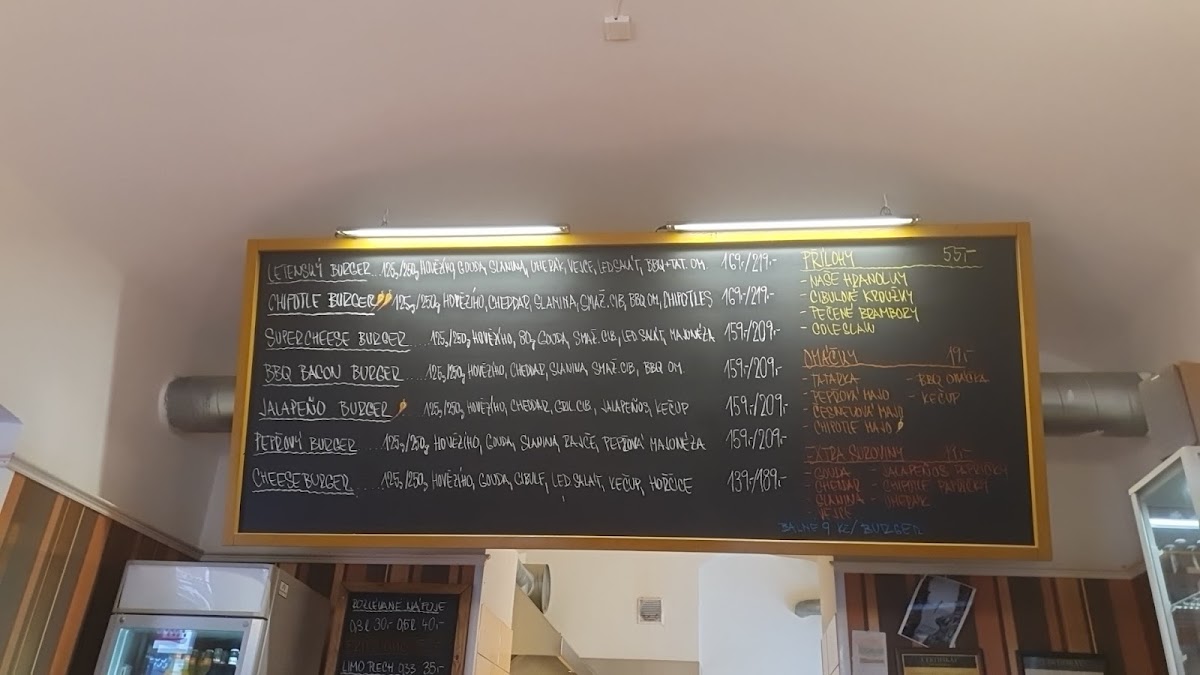 LETENSKÝ BURGER...125g/250g HOVĚZÍHO, GOUDA, SLANINA, UHERÁK, VEJCE, LED.SALÁT, BBQ+TAT. OM. 169,-/219,-
CHIPOTLE BURGER 125g/250g HOVĚZÍHO, CHEDDAR, SLANINA, SMAŽ.CIB, BBQ OM, CHIPOTLES 169,-/219,-
SUPERCHEESE BURGER.....125g/250g HOVĚZÍHO, 80g GOUDA, SMAŽ.CIB, LED SALÁT, MAJONÉZA 159,-/209,-
BBQ BACON BURGER....125g/250g HOVĚZÍHO, CHEDDAR, SLANINA, SMAŽ.CIB, BBQ OM. 159,-/209,-
JALAPEÑO BURGER 125g/250g HOVĚZÍHO, CHEDDAR, GRIL.CIB, JALAPEÑOS, KEČUP 159,-/209,-
PEPŘOVÝ BURGER....125g/250g HOVĚZÍHO, GOUDA, SLANINA, RAJČE, PEPŘOVÁ MAJONÉZA 159,-/209,-
CHEESEBURGER....125g/250g HOVĚZÍHO, GOUDA, CIBULE, LED SALÁT, KEČUP, HOŘČICE 139,-/189,-
PŘÍLOHY 55,-
- NAŠE HRANOLKY
- CIBULOVÉ KROUŽKY
- PEČENÉ BRAMBORY
- COLESLAW
OMÁČKY 19,-
- TATARKA - BBQ OMÁČKA
- PEPŘOVÁ MAJO - KEČUP
- ČESNEKOVÁ MAJO
- CHIPOTLE MAJO
EXTRA SUROVINY 19,-
- GOUDA - JALAPEÑOS PAPRIČKY
- CHEDDAR - CHIPOTLE PAPRIČKY
- SLANINA - UHERÁK
- VEJCE
BALNÉ 9 KČ/BURGER
ROZLÉVANÉ NÁPOJE
0,3l 30,- 0,5l 40,-
LIMO PLECH 0,33 35,-